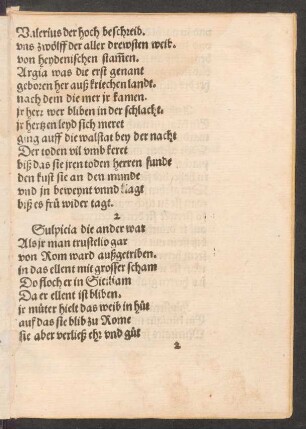 Valerius der hoch beschreib.
vns zwölff der aller drewsten weib.
von heydenischen stam̃en.
Argia was die erst genant
geboren her auß kriechen landt.
nach dem die mer jr kamen.
jr herr wer bliben in der schlacht.
jr hertzen leyd sich meret
ging auff die walstat bey der nacht
Der toden vil vmb keret
biß das sie jren toden herren funde
den kust sie an den munde
vnd jn beweynt vnnd klagt
biß es frü wider tagt.
2
Sulpicia die ander war
Als jr man trustelio gar
von Rom ward außgetriben.
in das ellent mit grosser scham
Do floch er in Siciliam
Da er ellent ist bliben.
jr müter hielt das weib in hüt
auf das sie blib zu Rome
sie aber verließ ehr vnd güt
2